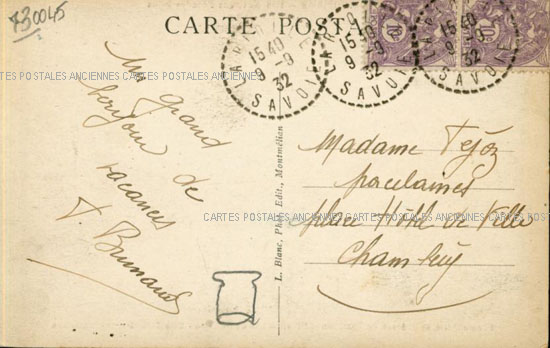 730045
CARTE POSTALE
15 40
9 - 9
32
SAVOIE
15 40
9 - 9
32
SAVOIE
15 40
9 - 9
32
SAVOIE
10
10
CARTES POSTALES ANCIENNES CARTES POSTALES ANCIENNES CARTES POSTALES ANCIENNES CARTES POSTALES ANCIENNES
Un grand
bonjour de
vacances
Madame
porcelaines
place Hôtel de Ville
Chambéry
CARTES POSTALES ANCIENNES CARTES POSTALES ANCIENNES CARTES
L. Blanc, Phot. Edit., Montmélian